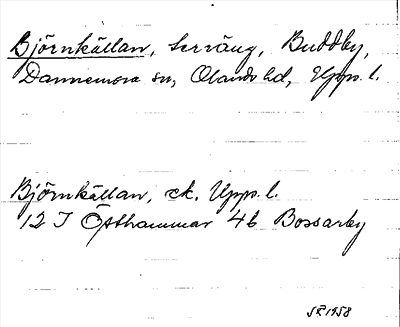 Björnkällan, terräng, Buddby,
Dannemora sn, Olands hd, Upps. l.
Björnkällan, ek. Upps. l.
12 I Östhammar 4b Bossarby
SE 1958